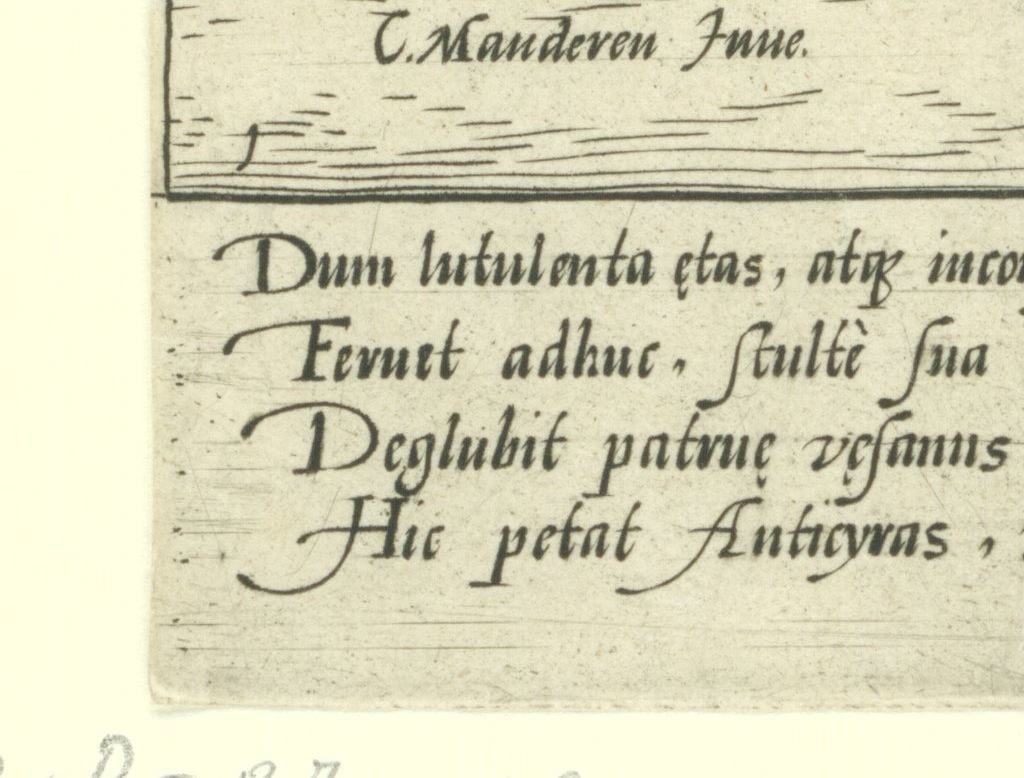 C. Manderen Inue.
1
Dum lutulenta ętas, atq;
Feruet adhuc, ſtultè ſua
Dęglubit patruę vęſanus
Hic petat Anticyras,